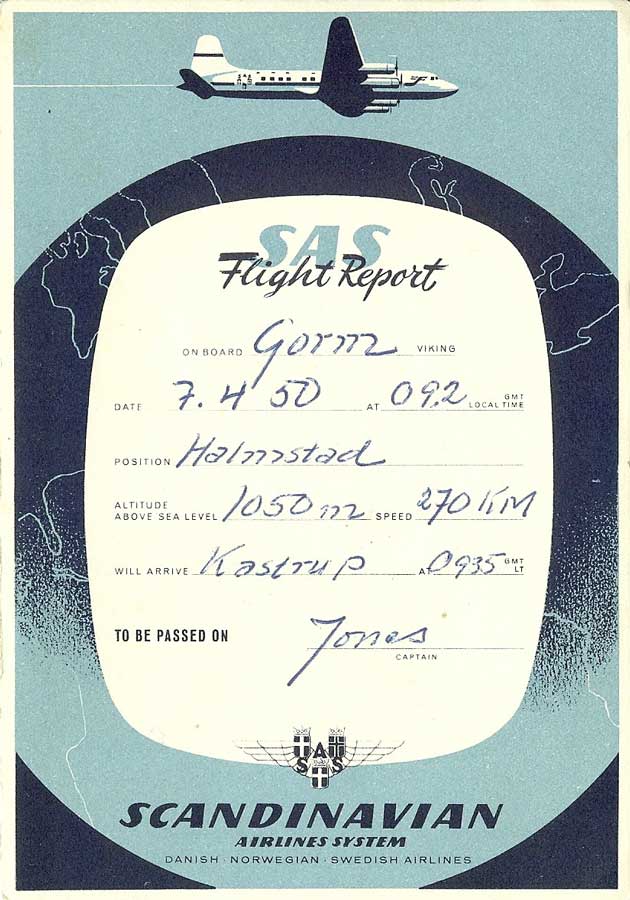 SAS
Flight Report
ON BOARD Gorm VIKING
DATE 7.4 50 AT 09.2 GMT LOCAL TIME
POSITION Halmstad
ALTITUDE ABOVE SEA LEVEL 1050 m SPEED 270 KM
WILL ARRIVE Kastrup AT 0935 GMT LT
TO BE PASSED ON Jones
CAPTAIN
SAS
SCANDINAVIAN
AIRLINES SYSTEM
DANISH · NORWEGIAN · SWEDISH AIRLINES